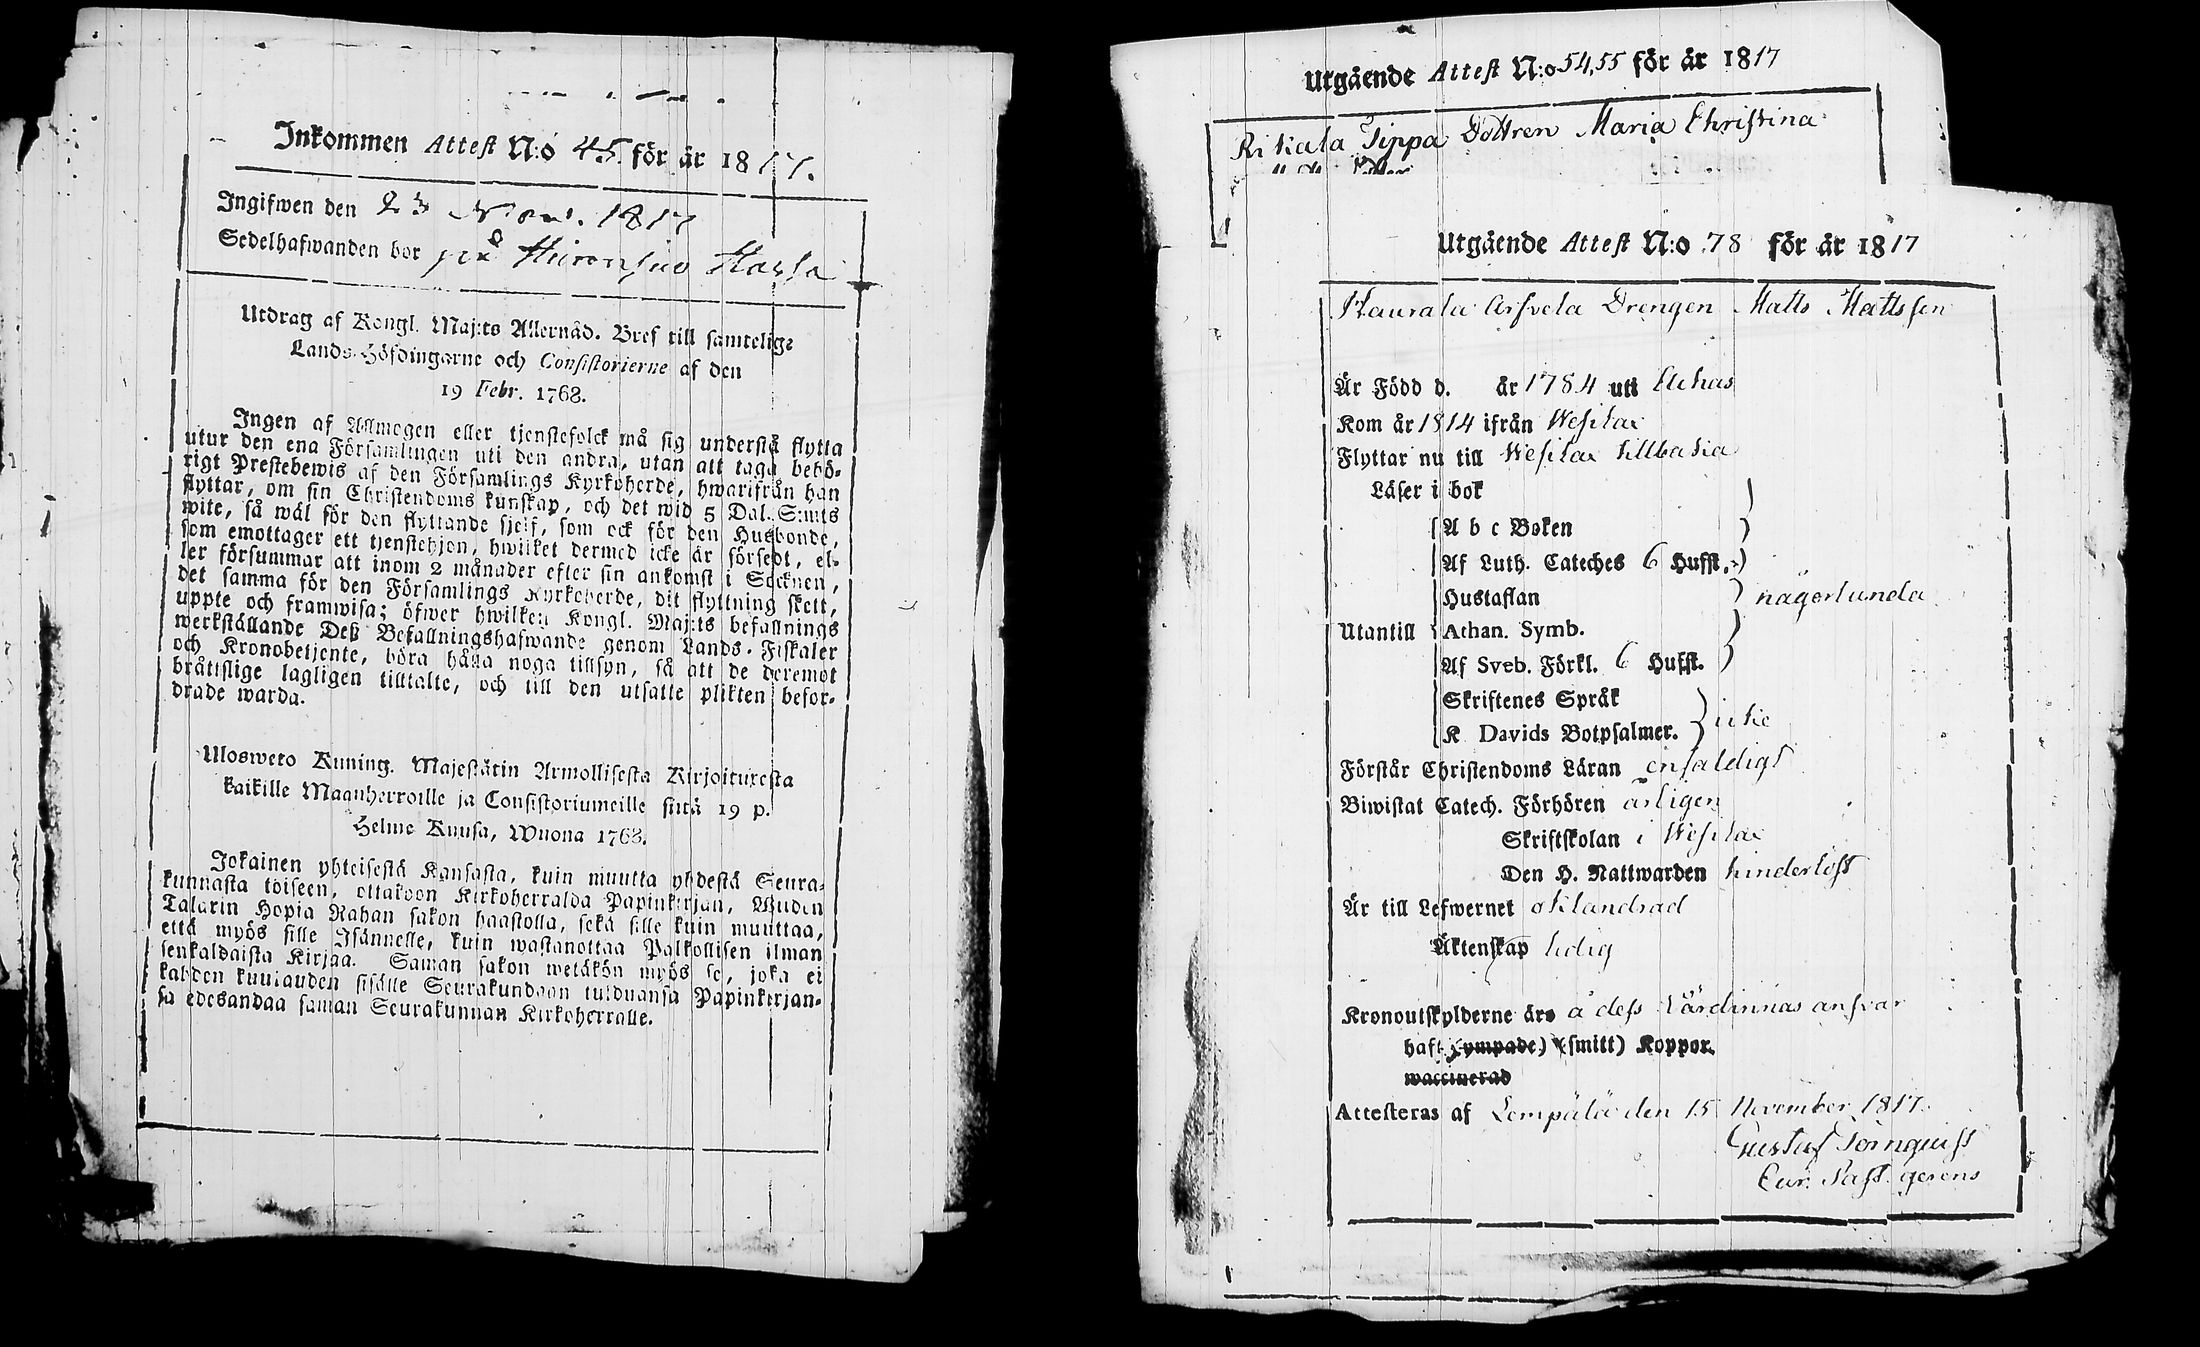 Inkommen Attest N:o 45. för år 1817.
Ingifwen den 23 Nov. 1817
Sedelhafwanden bor på
Utdrag af Kongl. Maj:ts Allernåd. Bref till samtelige
Lands-Höfdingarne och Consistorierne af den
19 Febr. 1768.
Ingen af Allmogen eller tjenstefolck må sig understå flytta
utur den ena Församlingen uti den andra, utan att taga behö-
rigt Prestebewis af den Församlings Kyrkoherde, hwarifrån han
flyttar, om sin Christendoms kunskap, och det wid 5 Dal. S:mts
wite, så wäl för den flyttande sjelf, som ock för den Husbonde,
som emottager ett tjenstehjon, hwilket dermed icke är försedt, el-
ler försummar att inom 2 månader efter sin ankomst i Socknen,
det samma för den Församlings Kyrkoherde, dit flyttning skett,
uppte och framwisa; öfwer hwilken Kongl. Maj:ts befallnings
werkställande Deß Befallningshafwande genom Lands-Fiskaler
och Kronobetjente, böra hålla noga tillsyn, så att de deremot
bråttslige lagligen tilltalte, och till den utsatte plikten befor-
drade warda.
Uloswero Kuning. Majestätin Armollisesta Kirjoituresta
kaikille Maanherroille ja Consistoriumeille siitä 19 p.
Helme Kuusa, Wuona 1768.
Jokainen yhteisestä Kansasta, kuin muutta yhdestä Seura-
kunnasta toiseen, ottakoon Kirkoherralda Papinkirjan, Wiiden
Talarin Hopia Rahan sakon haastolla, sekä sille kuin muuttaa,
että myös sille Isännelle, kuin wastanottaa Palkollisen ilman
senkaldaista Kirjaa. Saman sakon wetäkön myös se, joka ei
kahden kuukauden sisälle Seurakundaan tulduansa Papinkirjan-
sa edesandaa saman Seurakunnan Kirkoherralle.
Utgående Attest N:o 54,55 för år 1817
Rikala Sippa Dottren Maria Christina
Utgående Attest N:o 78 för år 1817
Drengen Matts Mattsson
Är Född d. år 1784 uti
Kom år 1814 ifrån Wesilax
Flyttar nu till Wesilax tillbaka
Läser i bok
A b c Boken
Af Luth. Cateches 6 Hufst.
Hustaflan någorlunda
Utantill Athan. Symb.
Af Sveb. Förkl. 6 Hufst.
Skriftenes Språk
K Davids Botpsalmer. icke
Förstår Christendoms Läran enfaldigt
Biwistat Catech. Förhören årligen
Skriftskolan i Wesilax
Den H. Nattwarden hinderlöst
Är till Lefwernet oklandrad
Äktenskap ledig
Kronoutskylderne äro å dess Värdinnas ansvar
haft (ympade) (smitt) Koppor.
waccinerad
Attesteras af Lempälä den 15 November 1817.
Gustaf Törnquist
Cur. Past. gerens